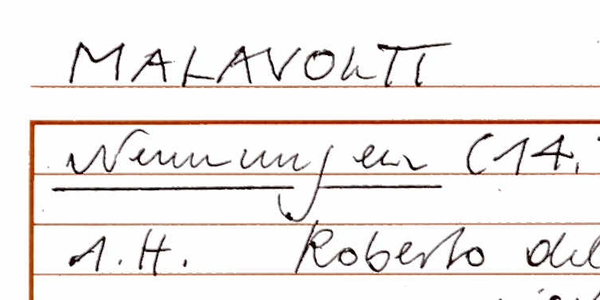 MALAVOLTI
Nennungen (14.
1.H. Roberto del